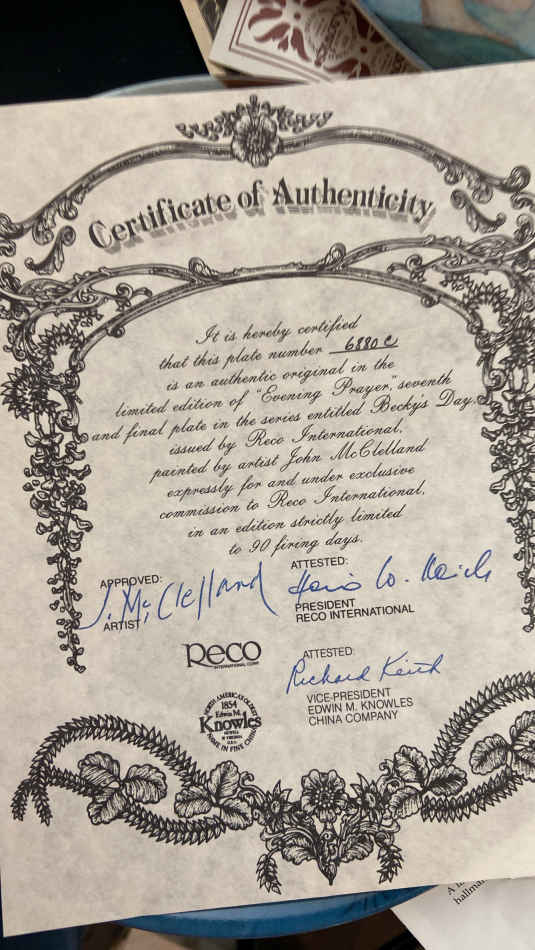 Certificate of Authenticity
It is hereby certified
that this plate number 6880 C
is an authentic original in the
limited edition of "Evening Prayer," seventh
and final plate in the series entitled Becky's Day,
issued by Reco International,
painted by artist John McClelland
expressly for and under exclusive
commission to Reco International,
in an edition strictly limited
to 90 firing days.
APPROVED:
J. McClelland
ARTIST
ATTESTED:
PRESIDENT
RECO INTERNATIONAL
Reco
INTERNATIONAL CORP.
ATTESTED:
Richard Keith
VICE-PRESIDENT
EDWIN M. KNOWLES
CHINA COMPANY
NORTH AMERICA'S OLDEST
1854
Edwin M.
Knowles
NAME IN FINE CHINA